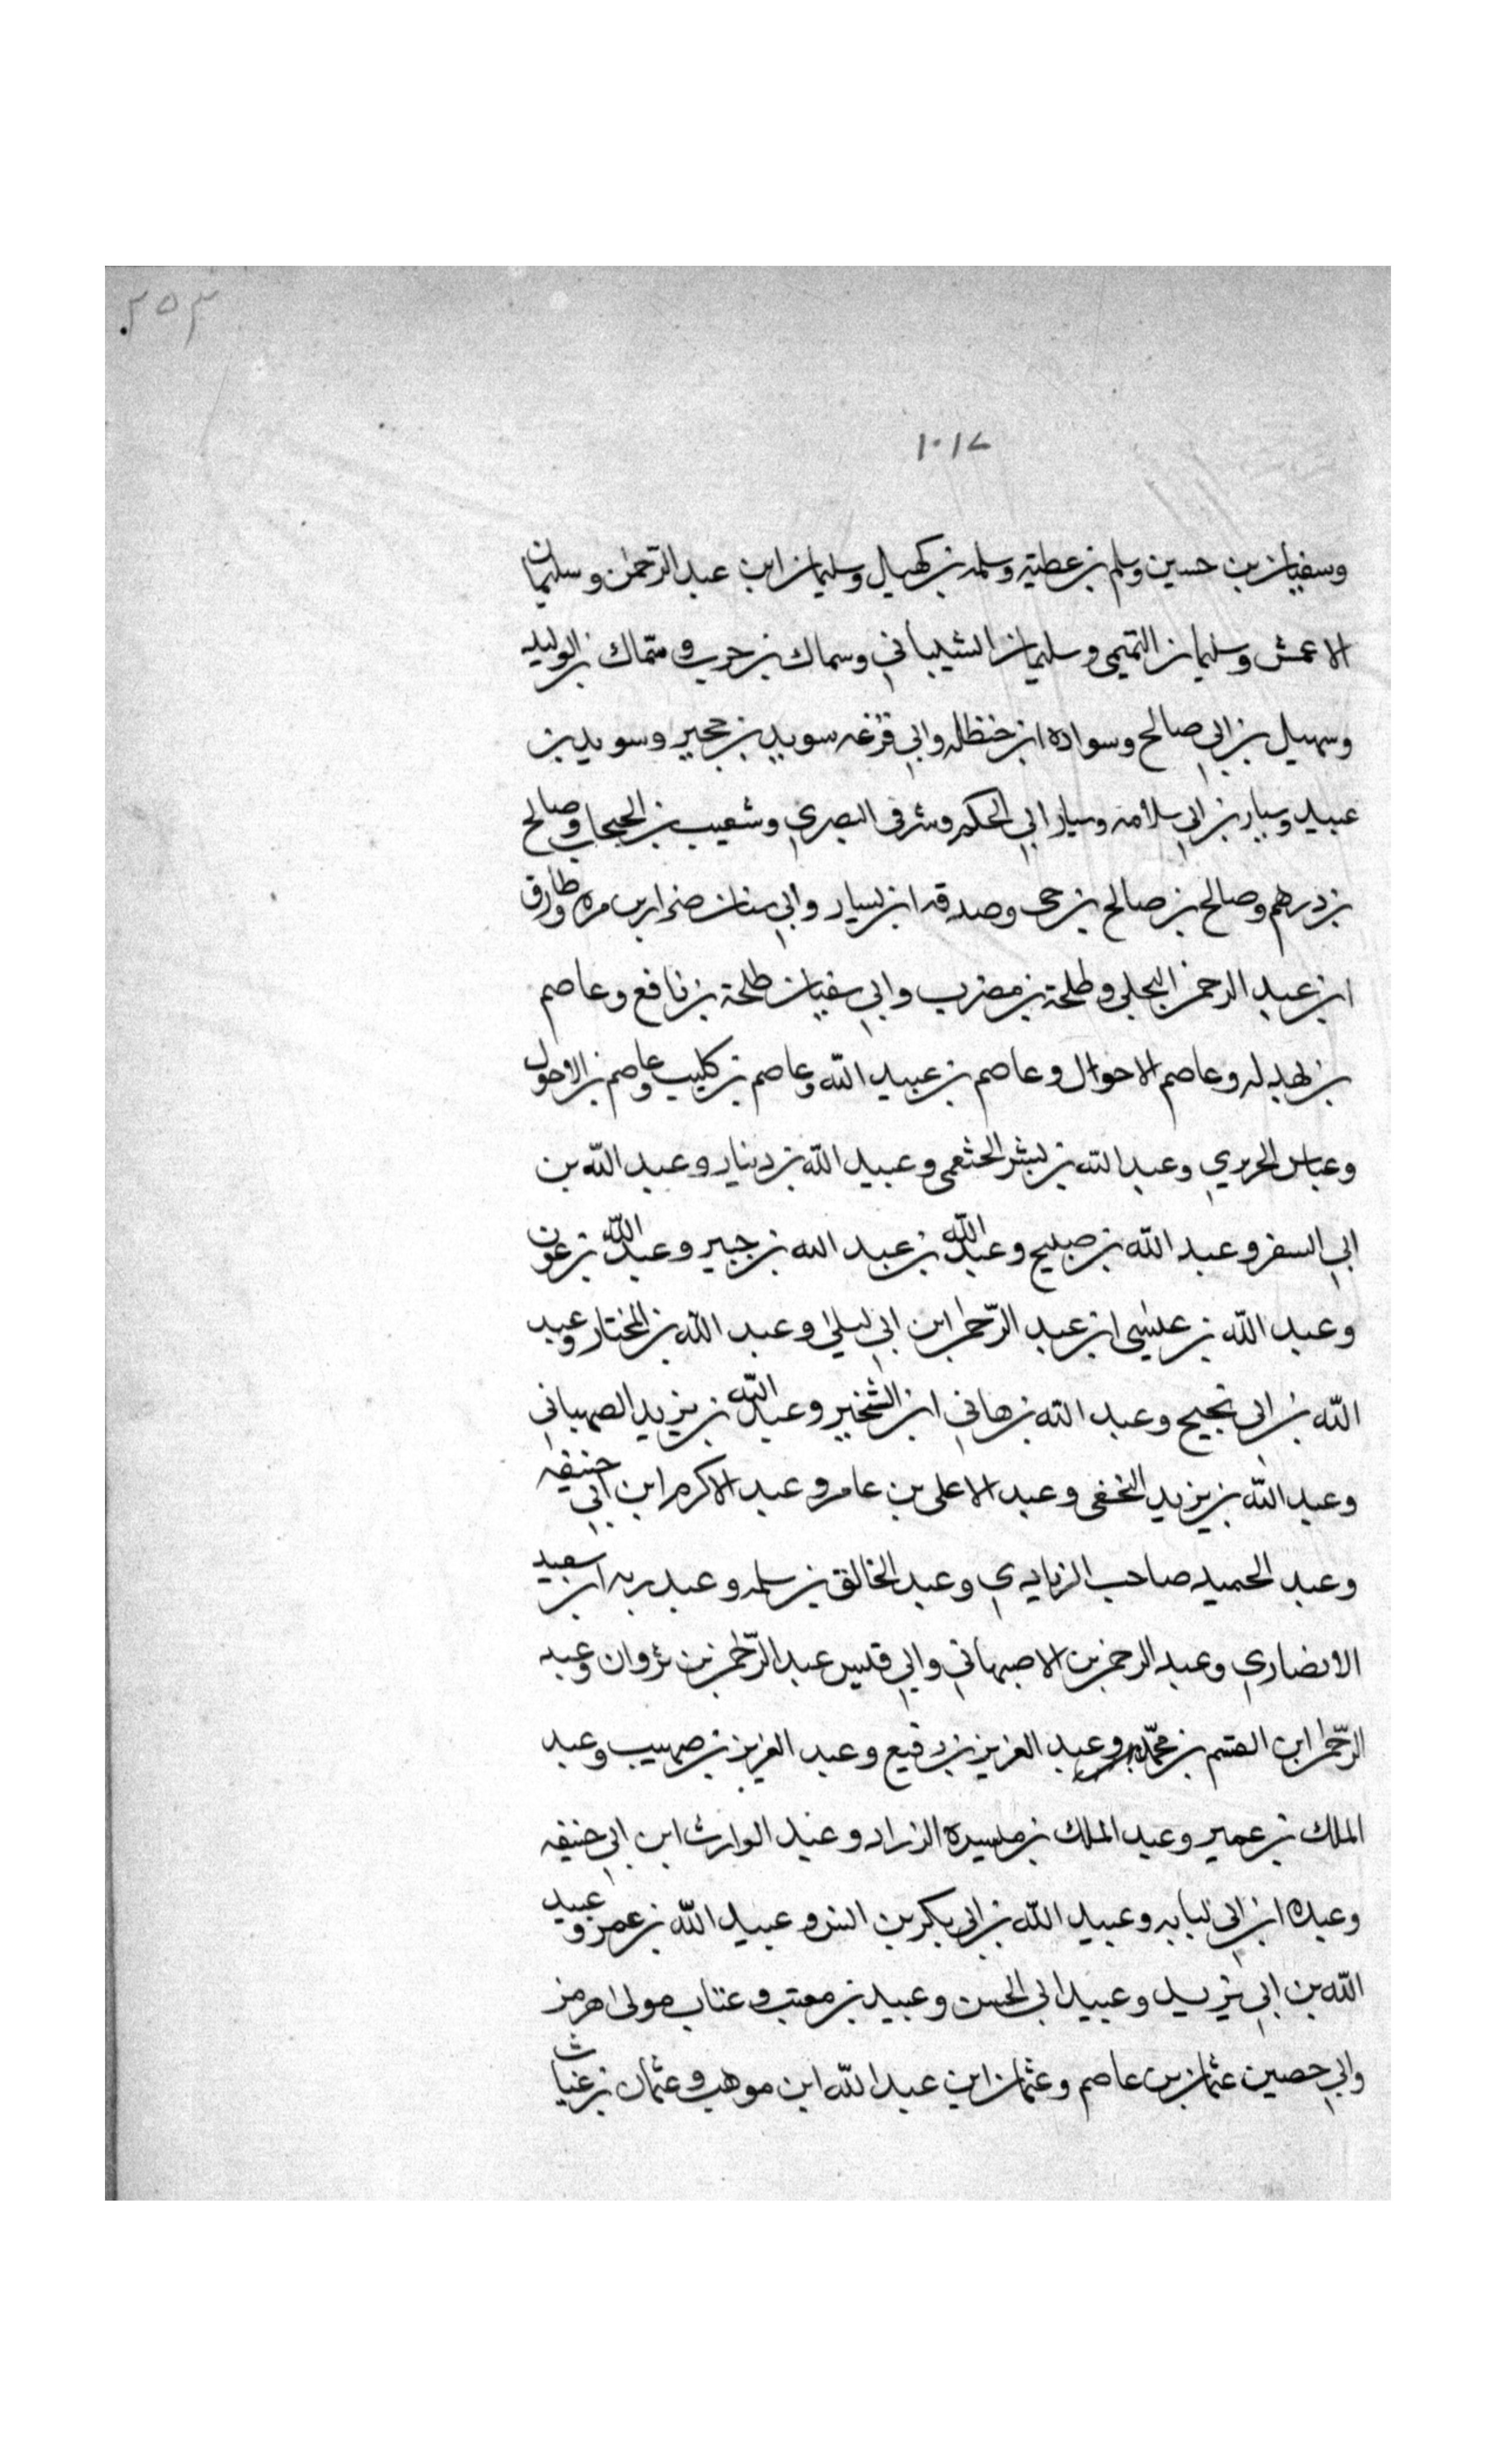 ٢٥٣
١٠١٧
وسفيان بن حسين وسلم بن عطية وسلمه بن كهيل وسليمان ابن عبد الرحمن وسليمان
الاعمش وسليمان التميمي وسليمان الشيباني وسماك بن حرب وسماك بن الوليد
وسهيل بن ابي صالح وسواده ابن حنظله وابي قزعه سويد بن حجير وسويد بن
عبيد وسيار بن ابي سلامه وسيار ابي الحكم وشرقي البصري وشعيب بن الحبحاب وصالح
بن درهم وصالح بن صالح بن حي وصدقه ابن يسار وابي سنان ضرار بن مره وطارق
ابن عبد الرحمن البجلي وطلحة بن مصرف وابي سفيان طلحة بن نافع وعاصم
بن بهدله وعاصم الاحوال وعاصم بن عبيد الله وعاصم بن كليب وعاصم بن الاحول
وعباس الجريري وعبد الله بن بشر الخثعمي وعبيد الله بن دينار وعبد الله بن
ابي السفر وعبد الله بن صبيح وعبد الله بن عبد الله بن جبير وعبد الله بن عون
وعبد الله بن عيسى ابن عبد الرحمن ابن ابي ليلى وعبد الله بن المختار وعبد
الله بن ابي نجيح وعبد الله بن هاني ابن الشخير وعبد الله بن يزيد الصهباني
وعبد الله بن يزيد النخعي وعبد الاعلى بن عامر وعبد الاكرم ابن ابي حنيفه
وعبد الحميد صاحب الزيادي وعبد الخالق بن سلمه وعبد ربه ابن سعيد
الانصاري وعبد الرحمن بن الاصبهاني وابي قيس عبد الرحمن بن ثروان وعبد
الرحمن ابن القسم بن محمد وعبد العزيز بن رفيع وعبد العزيز بن صهيب وعبد
الملك بن عمير وعبد الملك بن ميسرة الزراد وعبد الوارث ابن ابي حنيفه
وعبده ابن ابي لبابه وعبيد الله بن ابي بكر بن انس وعبيد الله بن عمر وعبيد
الله بن ابي يزيد وعبيد ابي الحسن وعبيد بن معتب وعتاب مولى هرمز
وابي حصين عثمان بن عاصم وعثمان ابن عبد الله ابن موهب وعثمان بن غياث